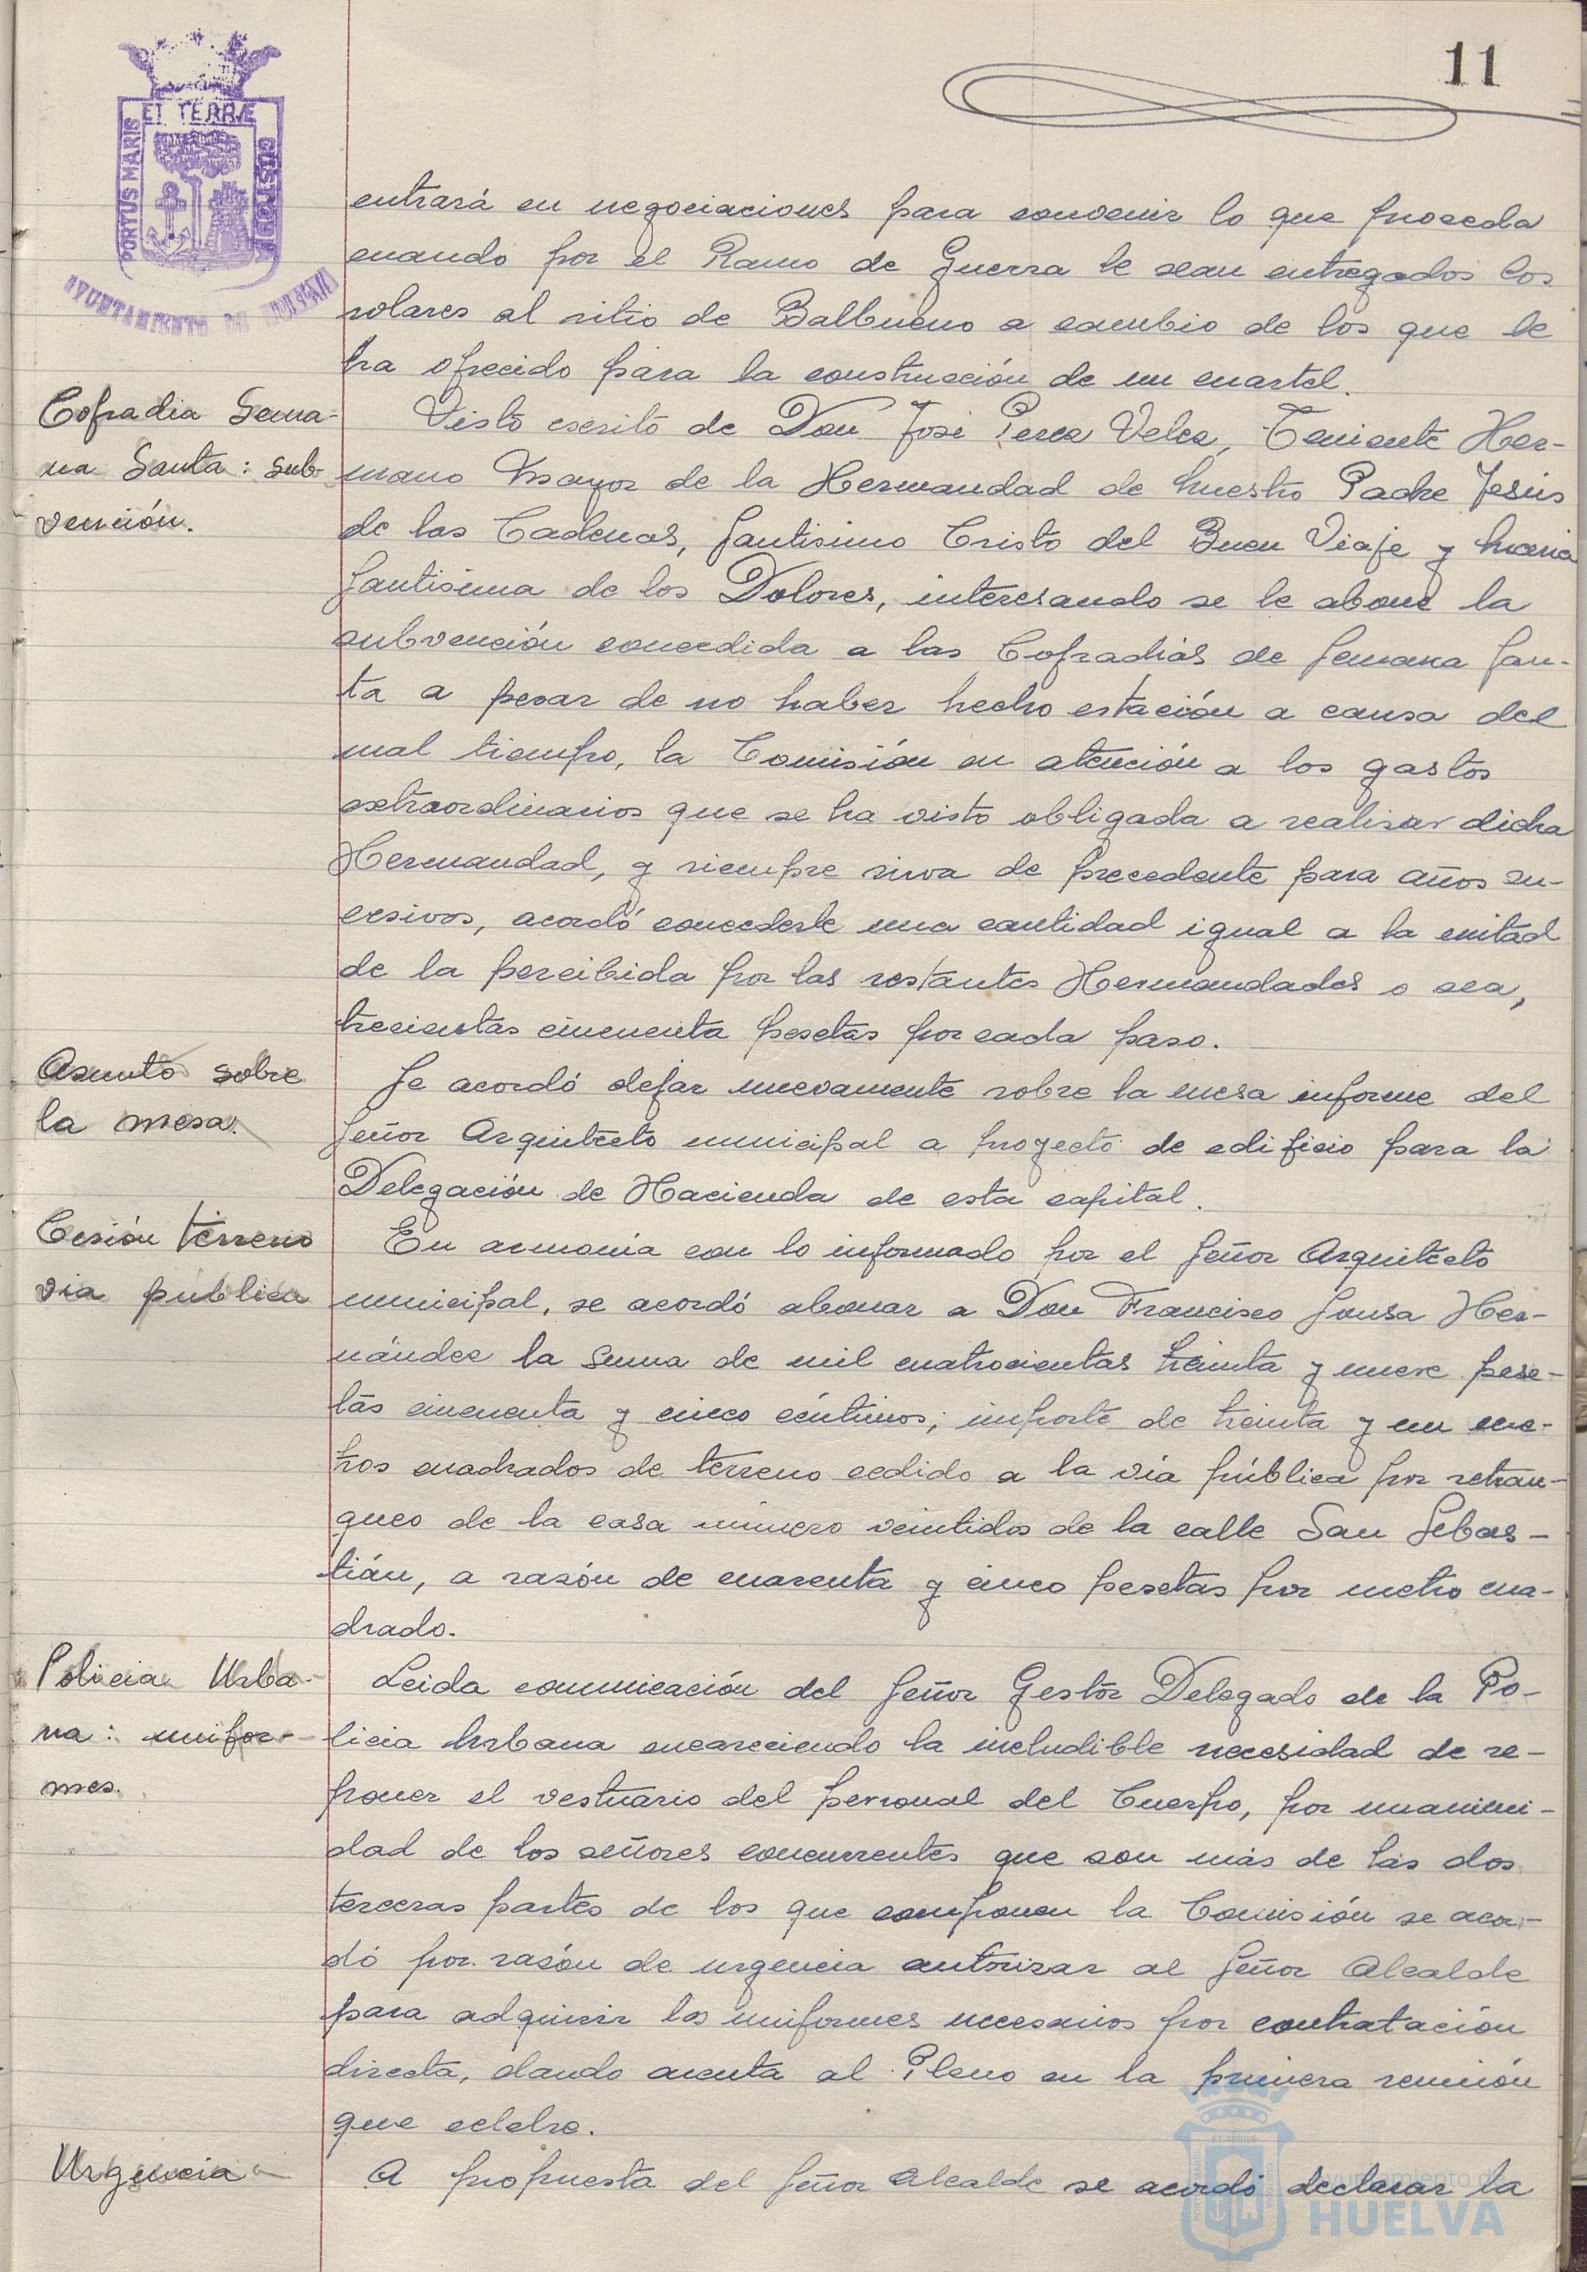 11
ET TERRÆ
PORTUS MARIS
CUSTODIA
AYUNTAMIENTO DE HUELVA
entrará en negociaciones para convenir lo que proceda
cuando por el Ramo de Guerra le sean entregados los
solares al sitio de Balbueno a cambio de los que le
ha ofrecido para la construcción de un cuartel.
Cofradia Sema-
na Santa: sub-
vención.
Visto escrito de Don José Perez Velez, Teniente Her-
mano Mayor de la Hermandad de Nuestro Padre Jesús
de las Cadenas, Santisimo Cristo del Buen Viaje y Maria
Santisima de los Dolores, interesando se le abone la
subvención concedida a las Cofradias de Semana San-
ta a pesar de no haber hecho estación a causa del
mal tiempo, la Comisión en atención a los gastos
extraordinarios que se ha visto obligada a realizar dicha
Hermandad, y siempre sirva de precedente para años su-
cesivos, acordó concederle una cantidad igual a la mitad
de la percibida por las restantes Hermandades o sea,
trecientas cincuenta pesetas por cada paso.
Asunto sobre
la mesa.
Se acordó dejar nuevamente sobre la mesa informe del
Señor Arquitecto municipal a proyecto de edificio para la
Delegación de Hacienda de esta capital.
Cesión terreno
via pública
En armonia con lo informado por el Señor Arquitecto
municipal, se acordó abonar a Don Francisco Sousa Her-
nández la suma de mil cuatrocientas treinta y nueve pese-
tas cincuenta y cinco céntimos; importe de treinta y un me-
tros cuadrados de terreno cedido a la via pública por retran-
queo de la casa número veintidos de la calle San Sebas-
tián, a razón de cuarenta y cinco pesetas por metro cua-
drado.
Policia Urba-
na: unifor-
mes.
Leida comunicación del Señor Gestor Delegado de la Po-
licia Urbana encareciendo la includible necesidad de re-
poner el vestuario del personal del Cuerpo, por unanimi-
dad de los señores concurrentes que son más de las dos
terceras partes de los que componen la Comisión se acor-
dó por razón de urgencia autorizar al Señor Alcalde
para adquirir los uniformes necesarios por contratación
directa, dando cuenta al Pleno en la primera reunión
que celebre.
Urgencia
A propuesta del Señor Alcalde se acordó declarar la
Ayuntamiento de
HUELVA